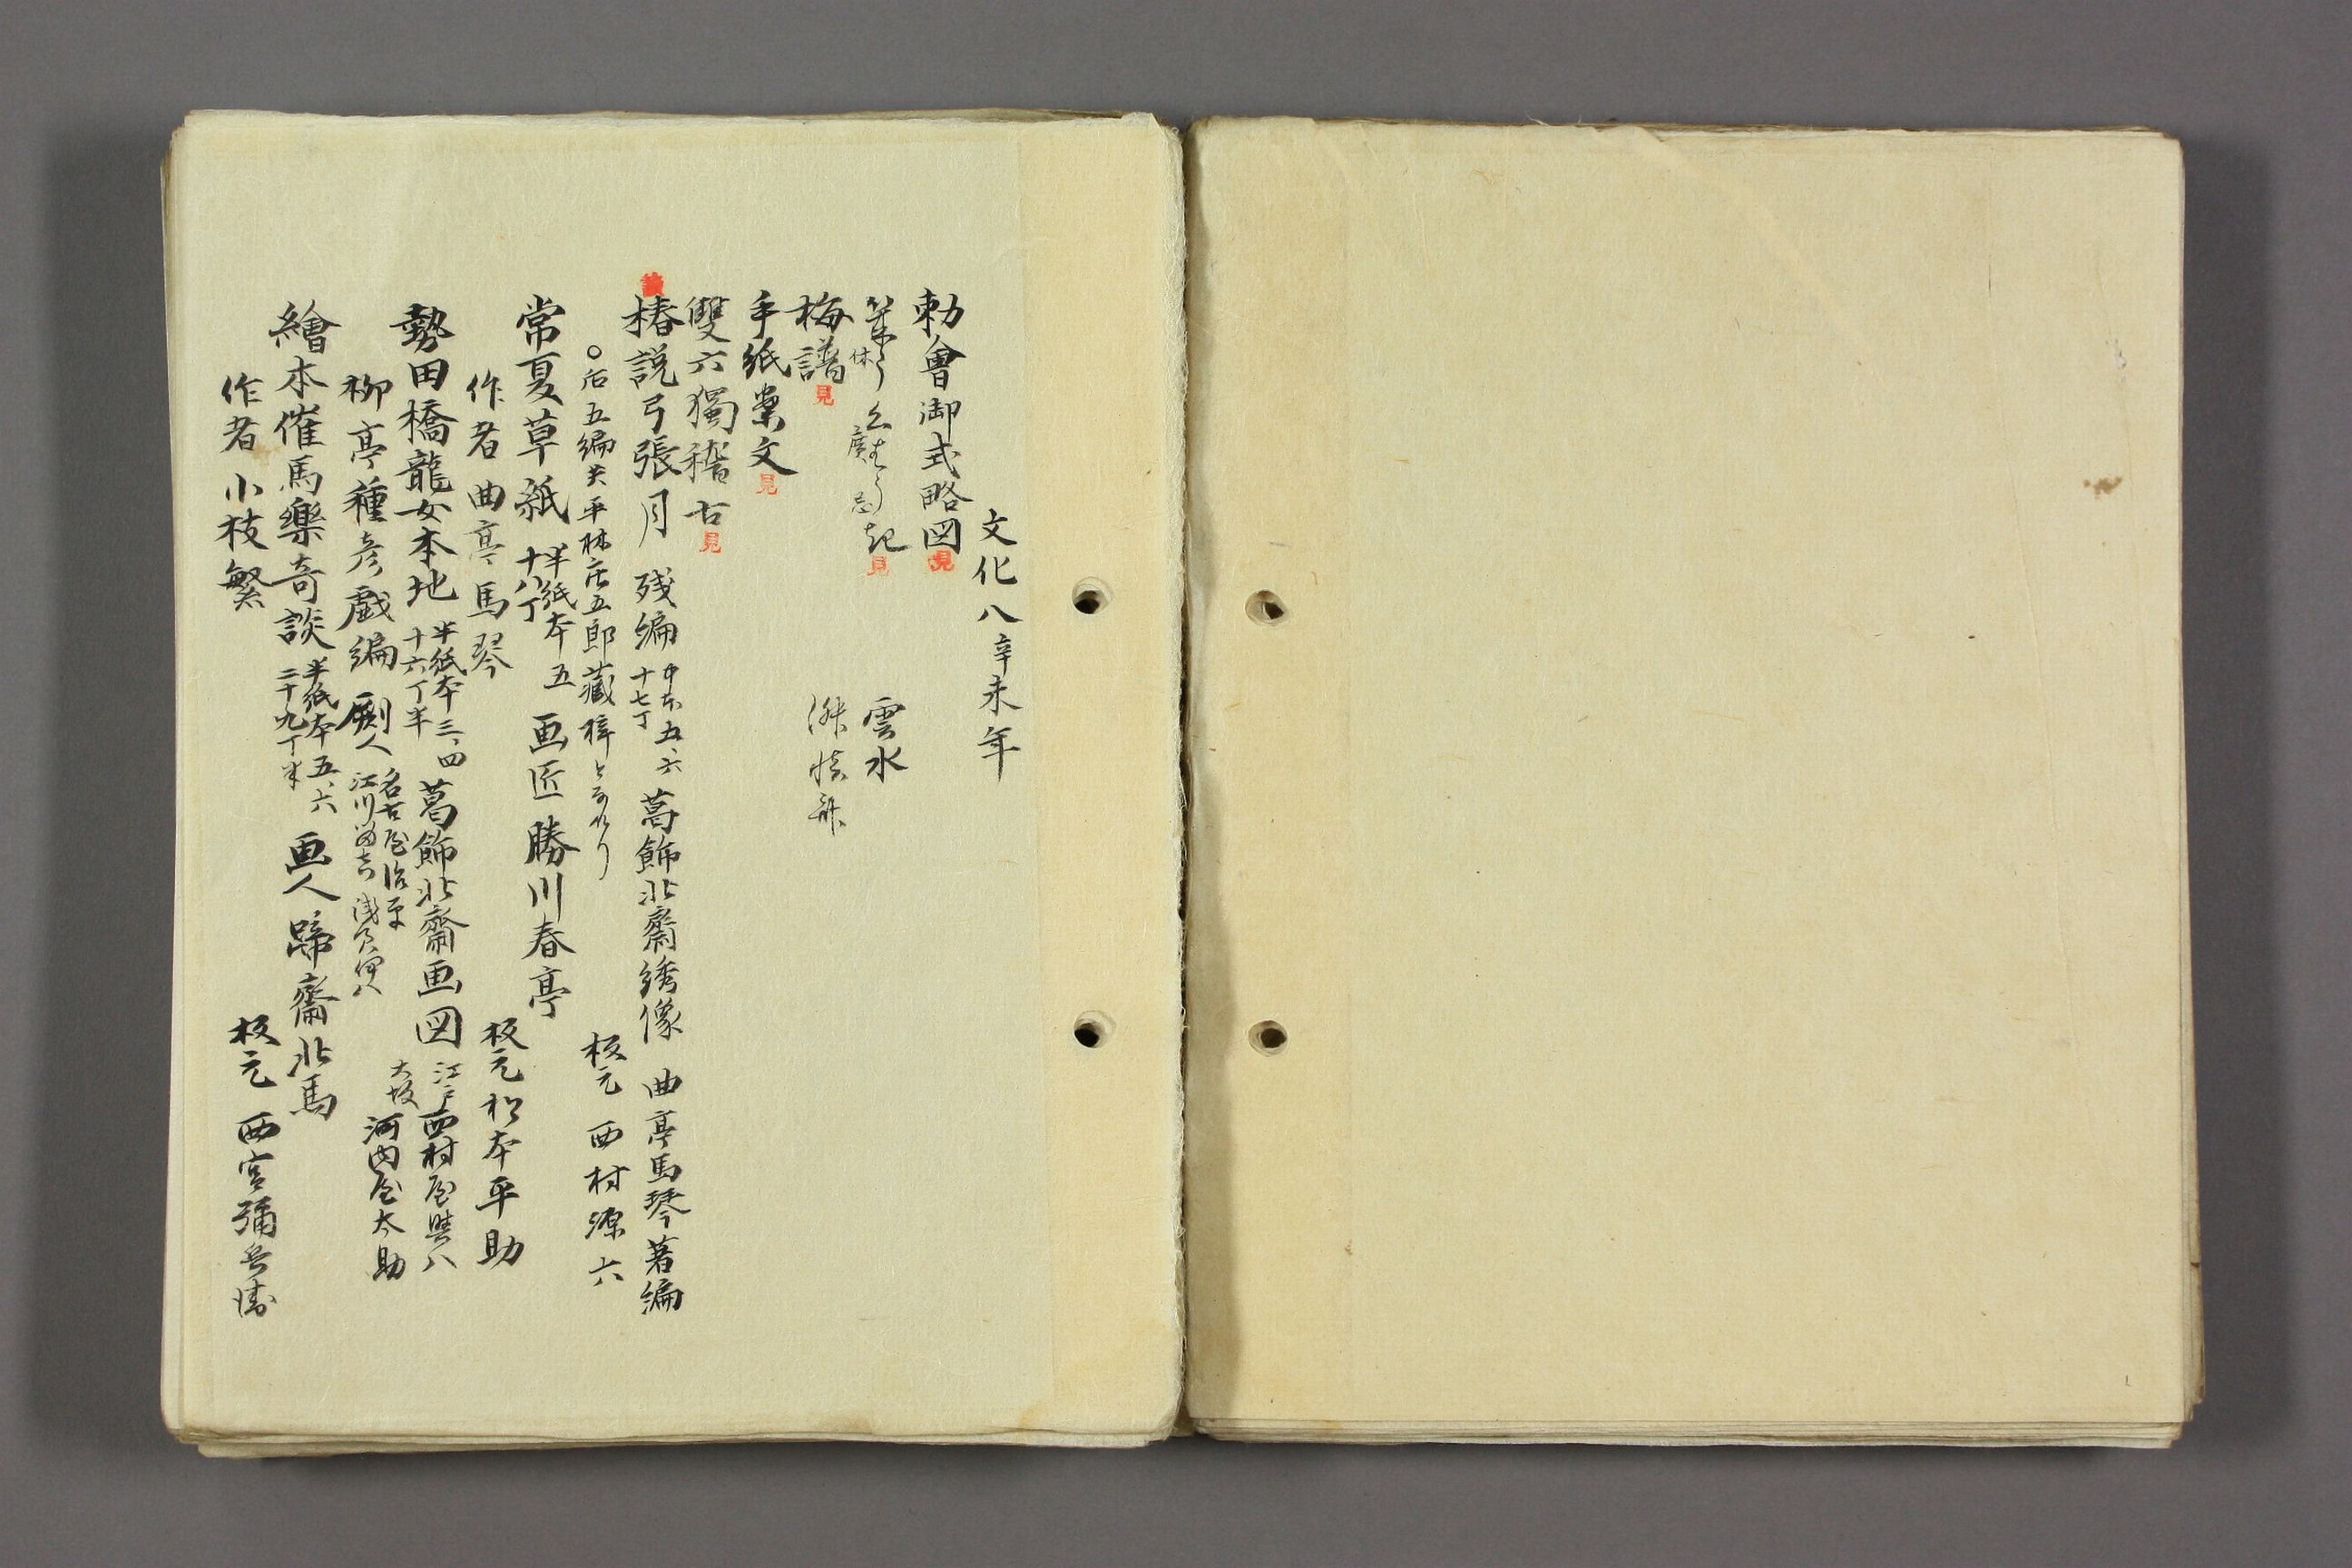 文化八辛未年
勅會御式略図 見
雲水
見
梅譜 見
手紙案文 見
雙六獨稽古 見
椿説弓張月 残編 中本五、六 十七丁 葛飾北齋綉像 曲亭馬琴著編
〇后五編共平林庄五郎藏梓となれり 板元 西村源六
常夏草紙 半紙本五 十八丁 画匠 勝川春亭
作者 曲亭馬琴 板元 松本平助
勢田橋龍女本地 半紙本三、四 十六丁半 葛飾北齋画図 江戸 西村屋與八
柳亭種彦戯編 劂人 名古屋治平 江川留吉 大坂 河内屋太助
繪本催馬樂奇談 半紙本五、六 二十九丁半 画人 蹄齋北馬
作者 小枝繁 板元 西宮彌兵衛